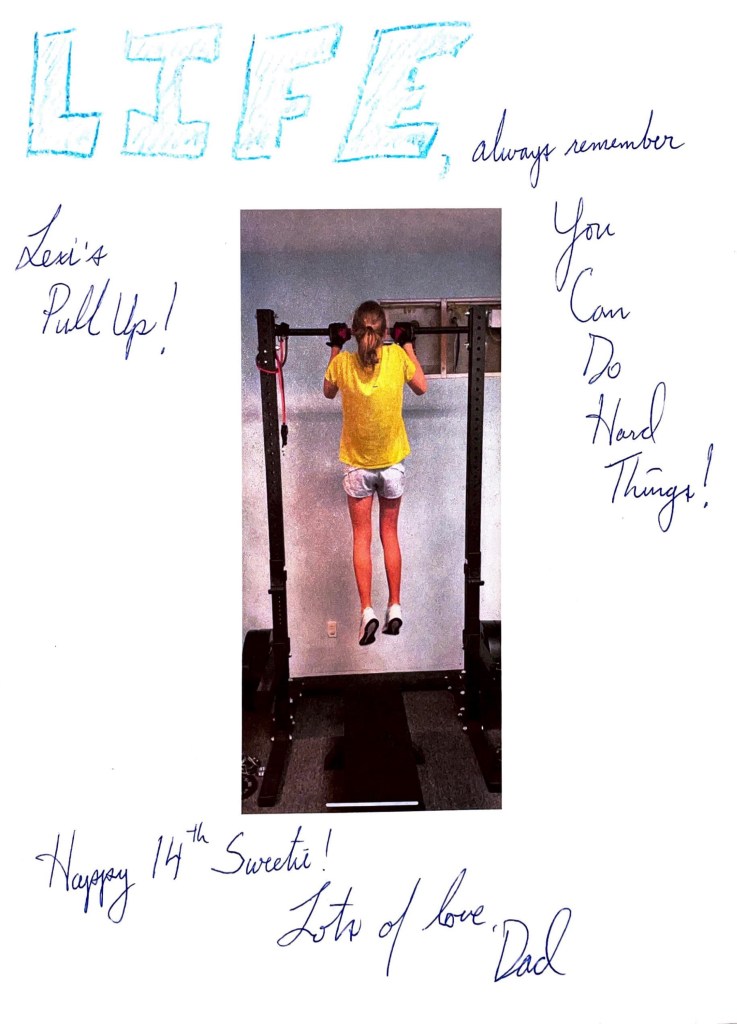 LIFE, always remember
Lexi's
Pull Up!
You
Can
Do
Hard
Things!
Happy 14th Sweetie!
Lots of love,
Dad